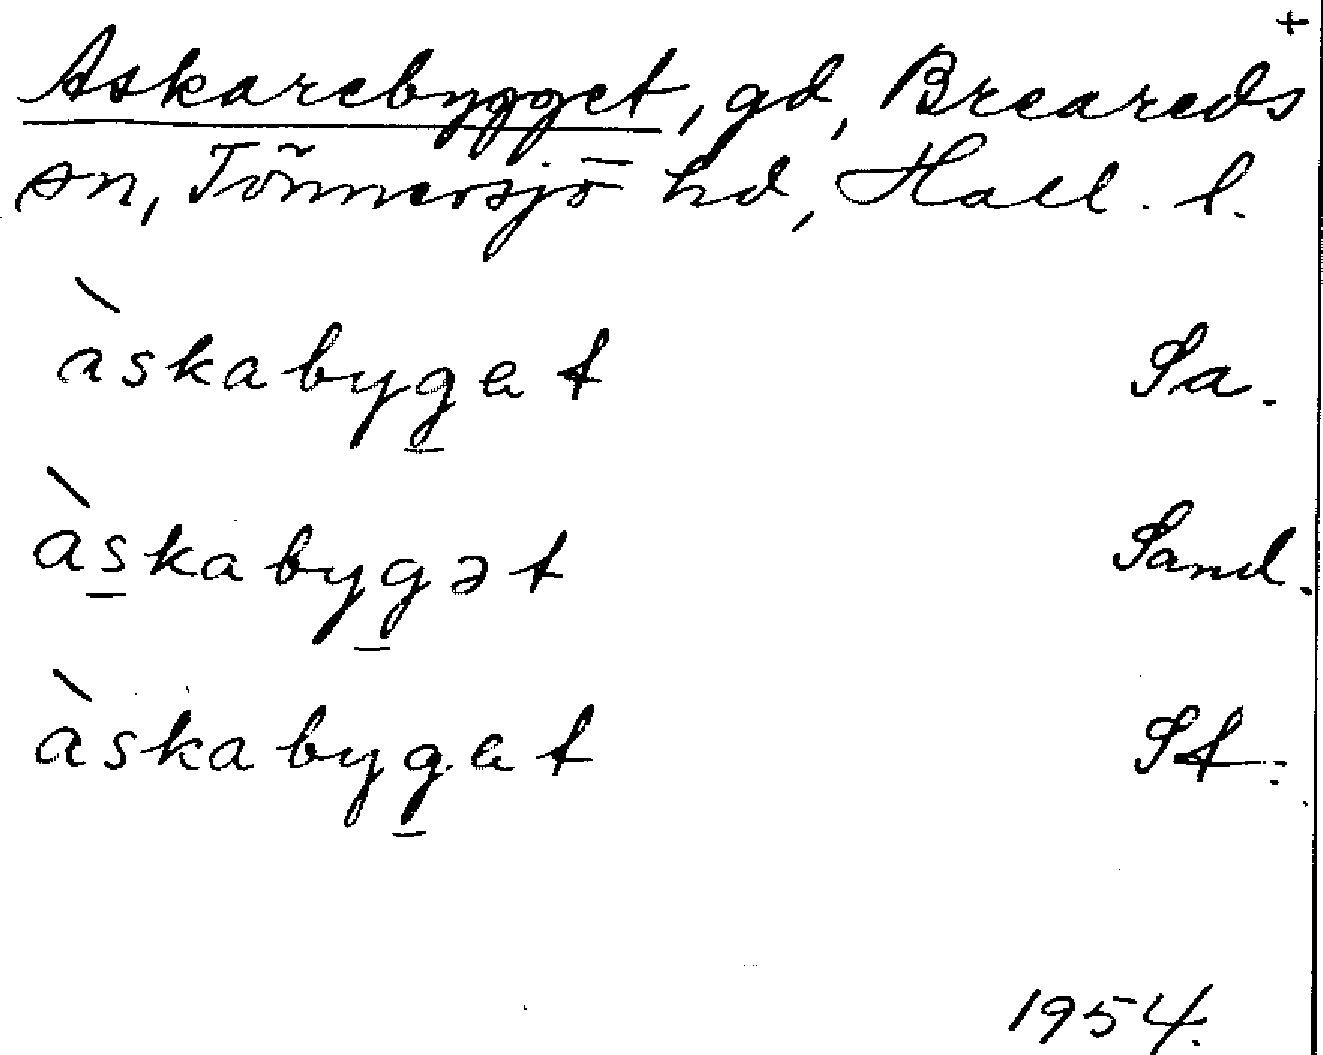 +
Askarebygget, gd, Breareds
sn, Tönnersjö hd, Hall. l.
àskabyget Sa.
àskabygət Sand.
àskabyget St.
1954.